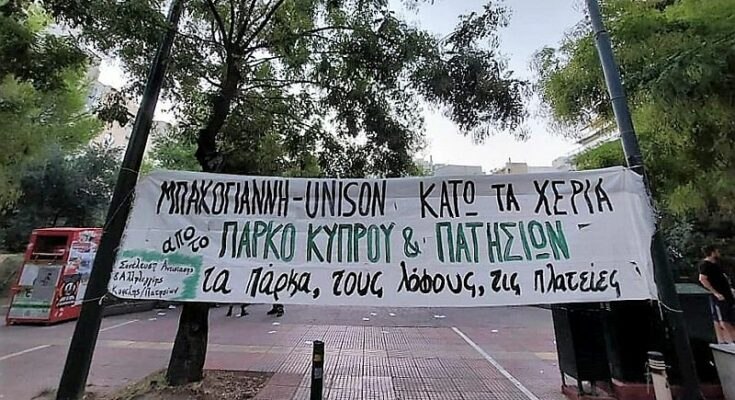 ΜΠΑΚΟΓΙΑΝΝΗ-UNISON ΚΑΤΩ ΤΑ ΧΕΡΙΑ
από το ΠΑΡΚΟ ΚΥΠΡΟΥ & ΠΑΤΗΣΙΩΝ
τα πάρκα, τους λόφους, τις πλατείες
Συνέλευση Αντίστασης
& Αλληλεγγύης
Κυψέλης/Πατησίων